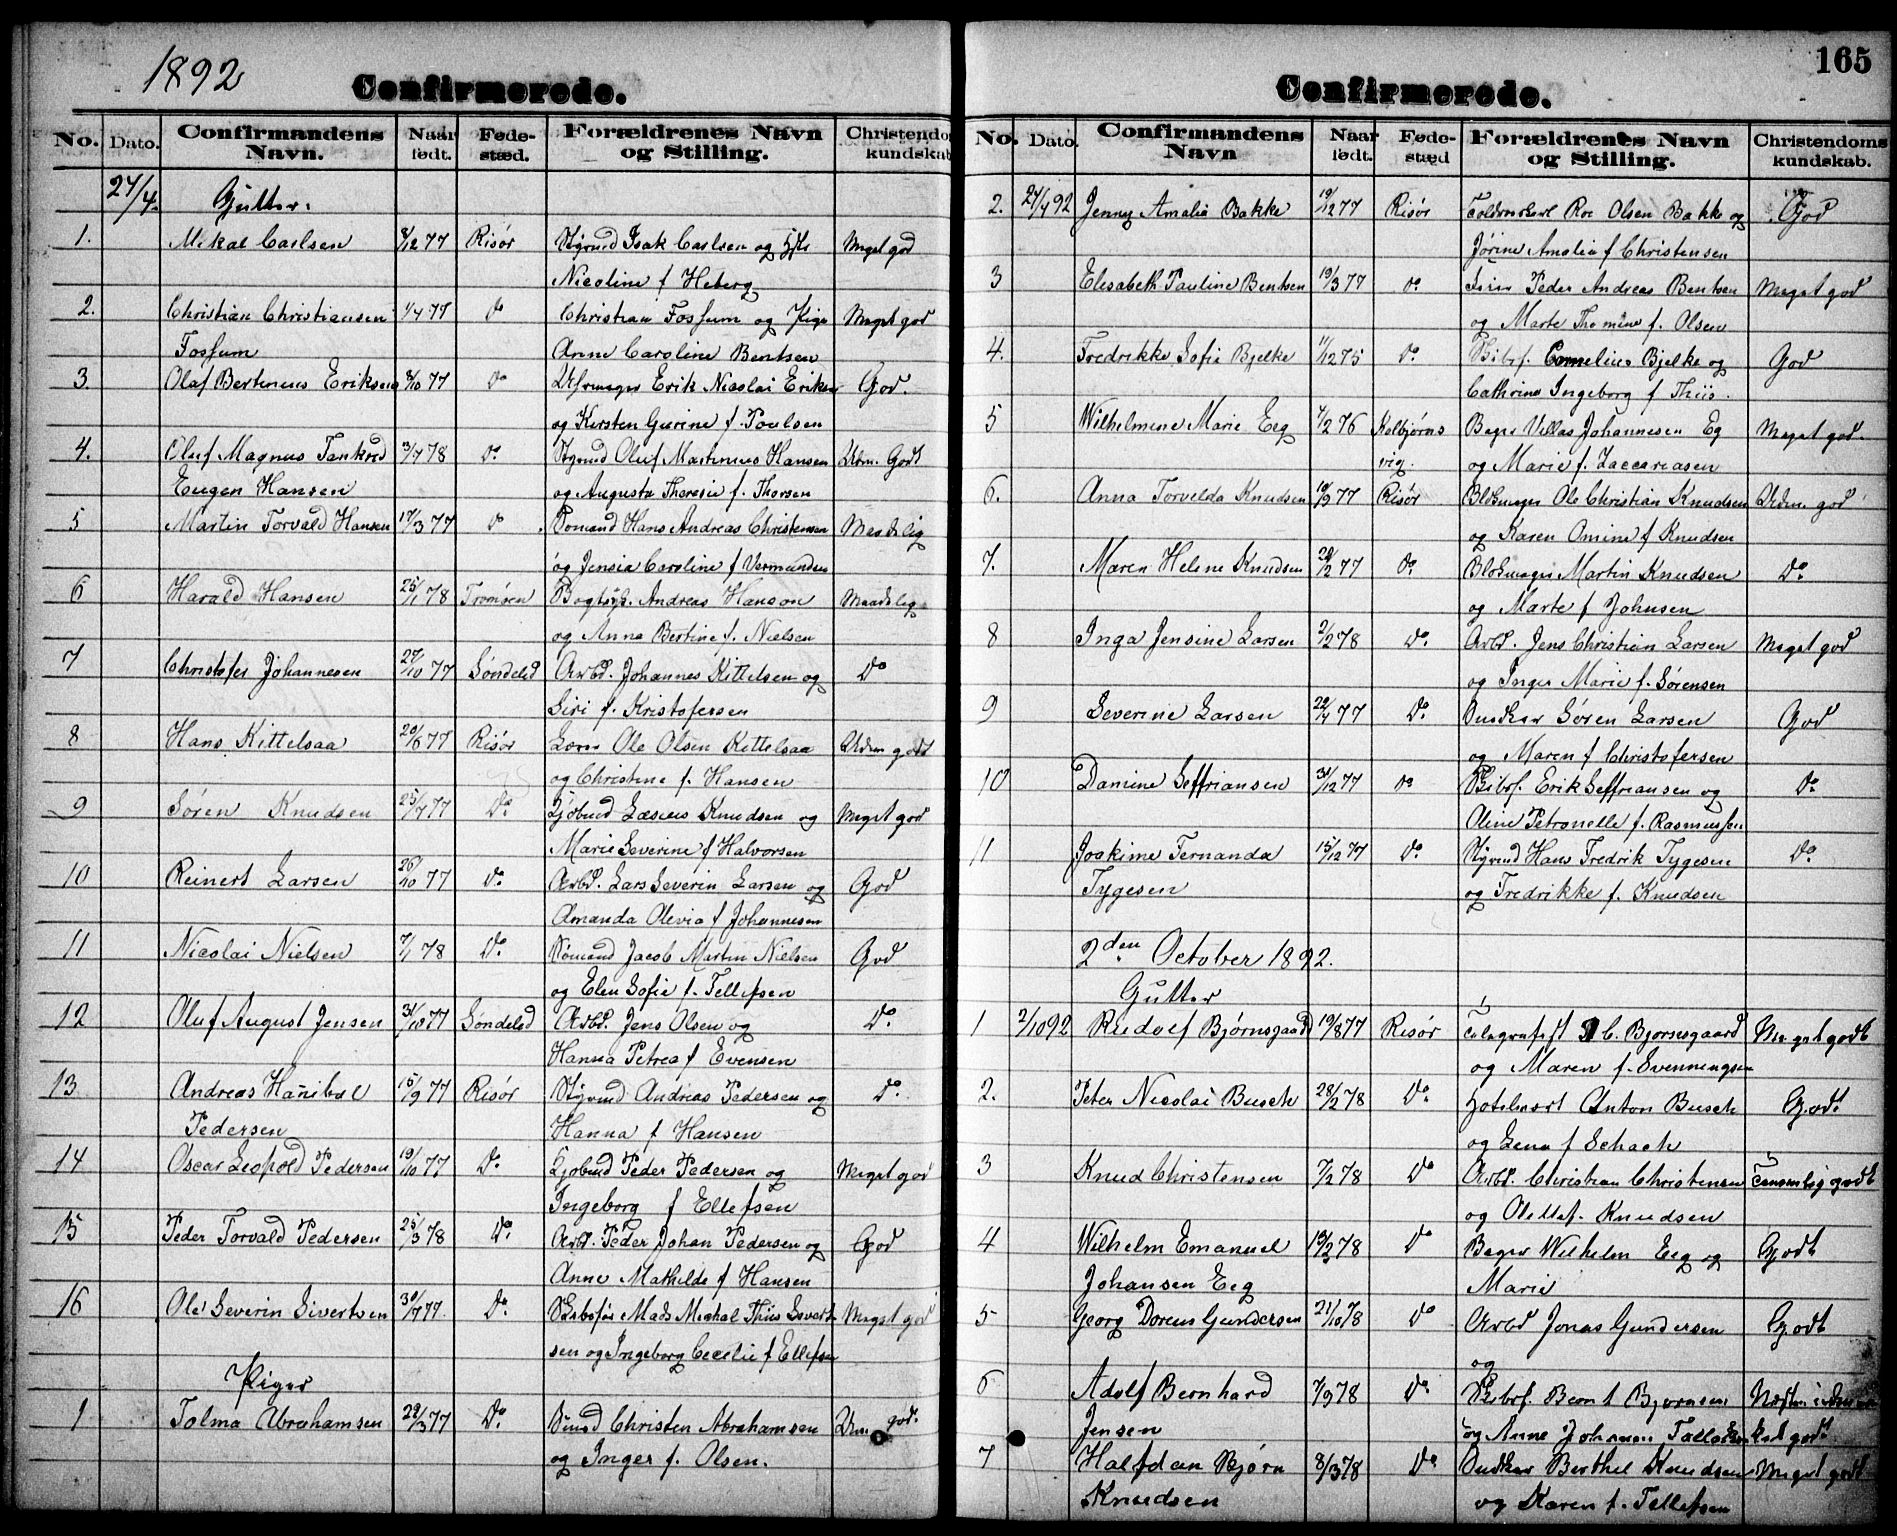 1892
Confirmerede.
No. Dato. Confirmandens Navn. Naar født. Føde-stæd. Forældrenes Navn og Stilling. Christendoms kundskab
24/4. Gutter.
1. Mikal Carlsen 8/12 77 Risør Styrmd Isak Carlsen og Meget god
Nicoline f Heberg
2. Christian Christiansen 1/4 77 do Christian Fossum og Pige Meget god
Fossum Anne Caroline Bentsen
3. Olaf Bertinius Eriksen 8/10 77 do Erik Nicolai Eriksen God.
og Kersten Gurine f. Poulsen
4. Oluf Magnus Tankred 3/4 78 do Styrmd Oluf Martinius Hansen Udm. Godt
Eugen Hansen og Augusta Theresie f. Thorsen
5 Martin Torvald Hansen 17/3 77 do Sømand Hans Andreas Christensen Maadelig
og Jensia Caroline f Vermundsen
6 Harald Hansen 25/1 78 Tromøen Andreas Hanson Maadelig
og Anna Bertine f. Nielsen
7 Christofer Johannesen 27/10 77 Søndeled Arbd. Johannes Kittelsen og Do
Siri f. Kristofersen
8 Hans Kittelsaa 20/6 77 Risør Lods Ole Olsen Kittelsaa Udm godt
og Christine f. Hansen
9 Søren Knudsen 25/7 77 Do Sjømd Læsius Knudsen og Meget god
Marie Severine f Halvorsen
10 Reinert Larsen 26/10 77 Do Arbd. Lars Severin Larsen og God
Amanda Olevia f Johannesen
11 Nicolai Nielsen 7/1 78 Do Sømand Jacob Martin Nielsen God
og Elen Sofie f. Tellefsen
12 Oluf August Jensen 31/10 77 Søndeled Arbd. Jens Olsen og Do
Hanna Petrea f Evensen
13 Andreas Hanibal 15/9 77 Risør Styrmd Andreas Pedersen og Do
Pedersen Hanna f Hansen
14 Oscar Leopold Pedersen 19/10 77 Do Sjømd Peder Pedersen og Meget god
Ingeborg f Ellefsen
15 Peder Torvald Pedersen 25/3 78 Do Arbd. Peder Johan Pedersen og God
Anne Mathilde f Hansen
16 Ole Severin Sivertsen 30/7 77. Do Skibsfør Mads Michal Thiis Sivert- Meget god
sen og Ingeborg Cecelie f Ellefsen
Piger
1 Tolma Abrahamsen 29/3 77 Do Sømd Christen Abrahamsen Udm. god.
og Inger f. Olsen.
165
Confirmerede.
No. Dato. Confirmandens Navn Naar født. Føde-stæd Forældrenes Navn og Stilling. Christendoms kundskab.
2. 24/4 92 Jenny Amalie Bakke 19/12 77 Risør Roe Olsen Bakke og God
Jørine Amalia f Christensen
3 Elisabeth Pauline Bentsen 19/3 77 do Peder Andreas Bentsen Meget god
og Marte Thomine f. Olsen
4. Fredrikke Sofie Bjelke 11/12 75 Do Skibsf. Cornelius Bjelke og God
Cathrine Ingeborg f Thiis.
5 Wilhelmine Marie Eeg 4/2 76 Kolbjørns Bager Villas Johannesen Eg Meget god.
vig. og Marie f. Zaccariasen
6. Anna Torvelda Knudsen 10/9 77 Risør Blokmager Ole Christian Knudsen Udm. god
og Karen Omine f Knudsen
7. Maren Helene Knudsen 20/2 77 Do Blokmager Martin Knudsen Do
og Marte f Johnsen
8 Inga Jensine Larsen 2/2 78 Do Arbd. Jens Christian Larsen Meget god
og Inger Marie f. Sørensen
9 Severine Larsen 22/4 77 Do Snedker Søren Larsen God
og Maren f Christofersen
10 Damine Seffriansen 31/12 77 do Skibsf. Erik Seffriansen og Do
Oline Petronelle f. Rasmussen
11 Joakime Fernanda 15/12 77 Do Styrmd Hans Fredrik Tygesen Do
Tygesen og Fredrikke f. Knudsen
2den October 1892.
Gutter
1 2/10 92 Rudolf Bjørnsgaard 19/8 77 Risør Telegrafist C. Bjornsgaard Meget godt
og Maren f. Svenningsen
2. Peter Nicolai Busch 28/2 78 Do Hotelvert Anton Busch Godt
og Lena f Schach
3 Knud Christensen 7/2 78 Do Arbd. Christian Christensen Temmelig godt
og Olette f. Knudsen
4 Wilhelm Emanuel 13/2 78 Do Bager Wilhelm Eeg og Godt
Johansen Eeg Marie
5 Georg Doreus Gundersen 21/10 78 Do Arbd Jonas Gundersen Godt
og
6 Adolf Bernhard 7/9 78 Do Skibsf. Bernt Bjørnsen Næsten
Jensen og Anne Johanne godt
7 Halfdan Bjørn 8/3 78 Do Snedker Berthel Knudsen Meget godt
Knudsen og Karen f. Tellefsen